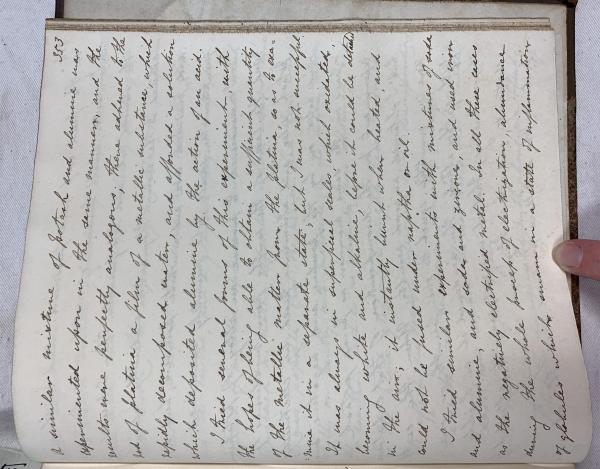 353
a similar mixture of potash and alumine was
experimented upon in the same manner, and the
results were perfectly analogous; there adhered to the
rod of platina a film of a metallic substance which
rapidly decomposed water, and afforded a solution
which deposited alumine by the action of an acid.
I tried several forms of this experiment, with
the hopes of being able to obtain a sufficient quantity
of the metallic matter from the platina, so as to exa-
:mine it in a separate state; but I was not successful.
It was always in superficial scales which oxidated,
becoming white and alkaline, before it could be detached
in the air; it instantly burnt when heated, and
could not be fused under naptha or oil.
I tried similar experiments with mixtures of soda
and alumine, and soda and zircone, and used iron
as the negatively electrified metal. In all these cases
during the whole process of electrization, abundance
of globules which swam in a state of inflammation